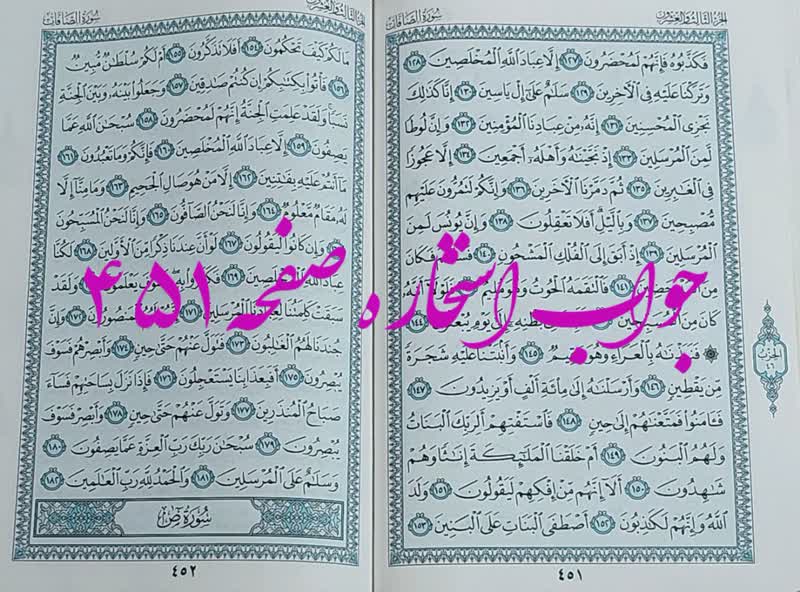 الجزء الثالث والعشرون
سورة الصافات
فَكَذَّبُوهُ فَإِنَّهُمْ لَمُحْضَرُونَ ١٢٧ إِلَّا عِبَادَ اللَّهِ الْمُخْلَصِينَ ١٢٨
وَتَرَكْنَا عَلَيْهِ فِي الْآخِرِينَ ١٢٩ سَلَامٌ عَلَىٰ إِلْ يَاسِينَ ١٣٠ إِنَّا كَذَٰلِكَ
نَجْزِي الْمُحْسِنِينَ ١٣١ إِنَّهُ مِنْ عِبَادِنَا الْمُؤْمِنِينَ ١٣٢ وَإِنَّ لُوطًا
لَّمِنَ الْمُرْسَلِينَ ١٣٣ إِذْ نَجَّيْنَاهُ وَأَهْلَهُ أَجْمَعِينَ ١٣٤ إِلَّا عَجُوزًا
فِي الْغَابِرِينَ ١٣٥ ثُمَّ دَمَّرْنَا الْآخَرِينَ ١٣٦ وَإِنَّكُمْ لَتَمُرُّونَ عَلَيْهِم
مُّصْبِحِينَ ١٣٧ وَبِاللَّيْلِ أَفَلَا تَعْقِلُونَ ١٣٨ وَإِنَّ يُونُسَ لَمِنَ
الْمُرْسَلِينَ ١٣٩ إِذْ أَبَقَ إِلَى الْفُلْكِ الْمَشْحُونِ ١٤٠ فَكَانَ
مِنَ ١٤١ فَالْتَقَمَهُ الْحُوتُ وَهُوَ مُلِيمٌ أَنَّهُ
كَانَ مِنَ الْمُسَبِّحِينَ بَطْنِهِ إِلَىٰ يَوْمِ يُبْعَثُونَ ١٤٤
۞ فَنَبَذْنَاهُ بِالْعَرَاءِ وَهُوَ سَقِيمٌ ١٤٥ وَأَنبَتْنَا عَلَيْهِ شَجَرَةً
مِّن يَقْطِينٍ ١٤٦ وَأَرْسَلْنَاهُ إِلَىٰ مِائَةِ أَلْفٍ أَوْ يَزِيدُونَ ١٤٧
فَآمَنُوا فَمَتَّعْنَاهُمْ إِلَىٰ حِينٍ ١٤٨ فَاسْتَفْتِهِمْ أَلِرَبِّكَ الْبَنَاتُ
وَلَهُمُ الْبَنُونَ ١٤٩ أَمْ خَلَقْنَا الْمَلَائِكَةَ إِنَاثًا وَهُمْ
شَاهِدُونَ ١٥٠ أَلَا إِنَّهُم مِّنْ إِفْكِهِمْ لَيَقُولُونَ ١٥١ وَلَدَ
اللَّهُ وَإِنَّهُمْ لَكَاذِبُونَ ١٥٢ أَصْطَفَى الْبَنَاتِ عَلَى الْبَنِينَ ١٥٣
الحزب ٤٦
٤٥١
الجزء الثالث والعشرون
سورة الصافات
مَا لَكُمْ كَيْفَ تَحْكُمُونَ ١٥٤ أَفَلَا تَذَكَّرُونَ ١٥٥ أَمْ لَكُمْ سُلْطَانٌ مُّبِينٌ
١٥٦ فَأْتُوا بِكِتَابِكُمْ إِن كُنتُمْ صَادِقِينَ ١٥٧ وَجَعَلُوا بَيْنَهُ وَبَيْنَ الْجِنَّةِ
نَسَبًا وَلَقَدْ عَلِمَتِ الْجِنَّةُ إِنَّهُمْ لَمُحْضَرُونَ ١٥٨ سُبْحَانَ اللَّهِ عَمَّا
يَصِفُونَ ١٥٩ إِلَّا عِبَادَ اللَّهِ الْمُخْلَصِينَ ١٦٠ فَإِنَّكُمْ وَمَا تَعْبُدُونَ ١٦١
مَا أَنتُمْ عَلَيْهِ بِفَاتِنِينَ ١٦٢ إِلَّا مَنْ هُوَ صَالِ الْجَحِيمِ ١٦٣ وَمَا مِنَّا إِلَّا
لَهُ مَقَامٌ مَّعْلُومٌ ١٦٤ وَإِنَّا لَنَحْنُ الصَّافُّونَ ١٦٥ وَإِنَّا لَنَحْنُ الْمُسَبِّحُونَ
وَإِن كَانُوا لَيَقُولُونَ ١٦٧ لَوْ أَنَّ عِندَنَا ذِكْرًا مِّنَ الْأَوَّلِينَ ١٦٨ لَكُنَّا
عِبَادَ اللَّهِ الْمُخْلَصِينَ ١٦٩ فَكَفَرُوا بِهِ فَسَوْفَ يَعْلَمُونَ وَلَقَدْ
سَبَقَتْ كَلِمَتُنَا لِعِبَادِنَا الْمُرْسَلِينَ ١٧١ الْمَنصُورُونَ ١٧٢ وَإِنَّ
جُندَنَا لَهُمُ الْغَالِبُونَ ١٧٣ فَتَوَلَّ عَنْهُمْ حَتَّىٰ حِينٍ ١٧٤ وَأَبْصِرْهُمْ فَسَوْفَ
يُبْصِرُونَ ١٧٥ أَفَبِعَذَابِنَا يَسْتَعْجِلُونَ ١٧٦ فَإِذَا نَزَلَ بِسَاحَتِهِمْ فَسَاءَ
صَبَاحُ الْمُنذَرِينَ ١٧٧ وَتَوَلَّ عَنْهُمْ حَتَّىٰ حِينٍ ١٧٨ وَأَبْصِرْ فَسَوْفَ
يُبْصِرُونَ ١٧٩ سُبْحَانَ رَبِّكَ رَبِّ الْعِزَّةِ عَمَّا يَصِفُونَ ١٨٠
وَسَلَامٌ عَلَى الْمُرْسَلِينَ ١٨١ وَالْحَمْدُ لِلَّهِ رَبِّ الْعَالَمِينَ ١٨٢
سورة ص
٤٥٢
جواب استخاره صفحه ۴۵۱